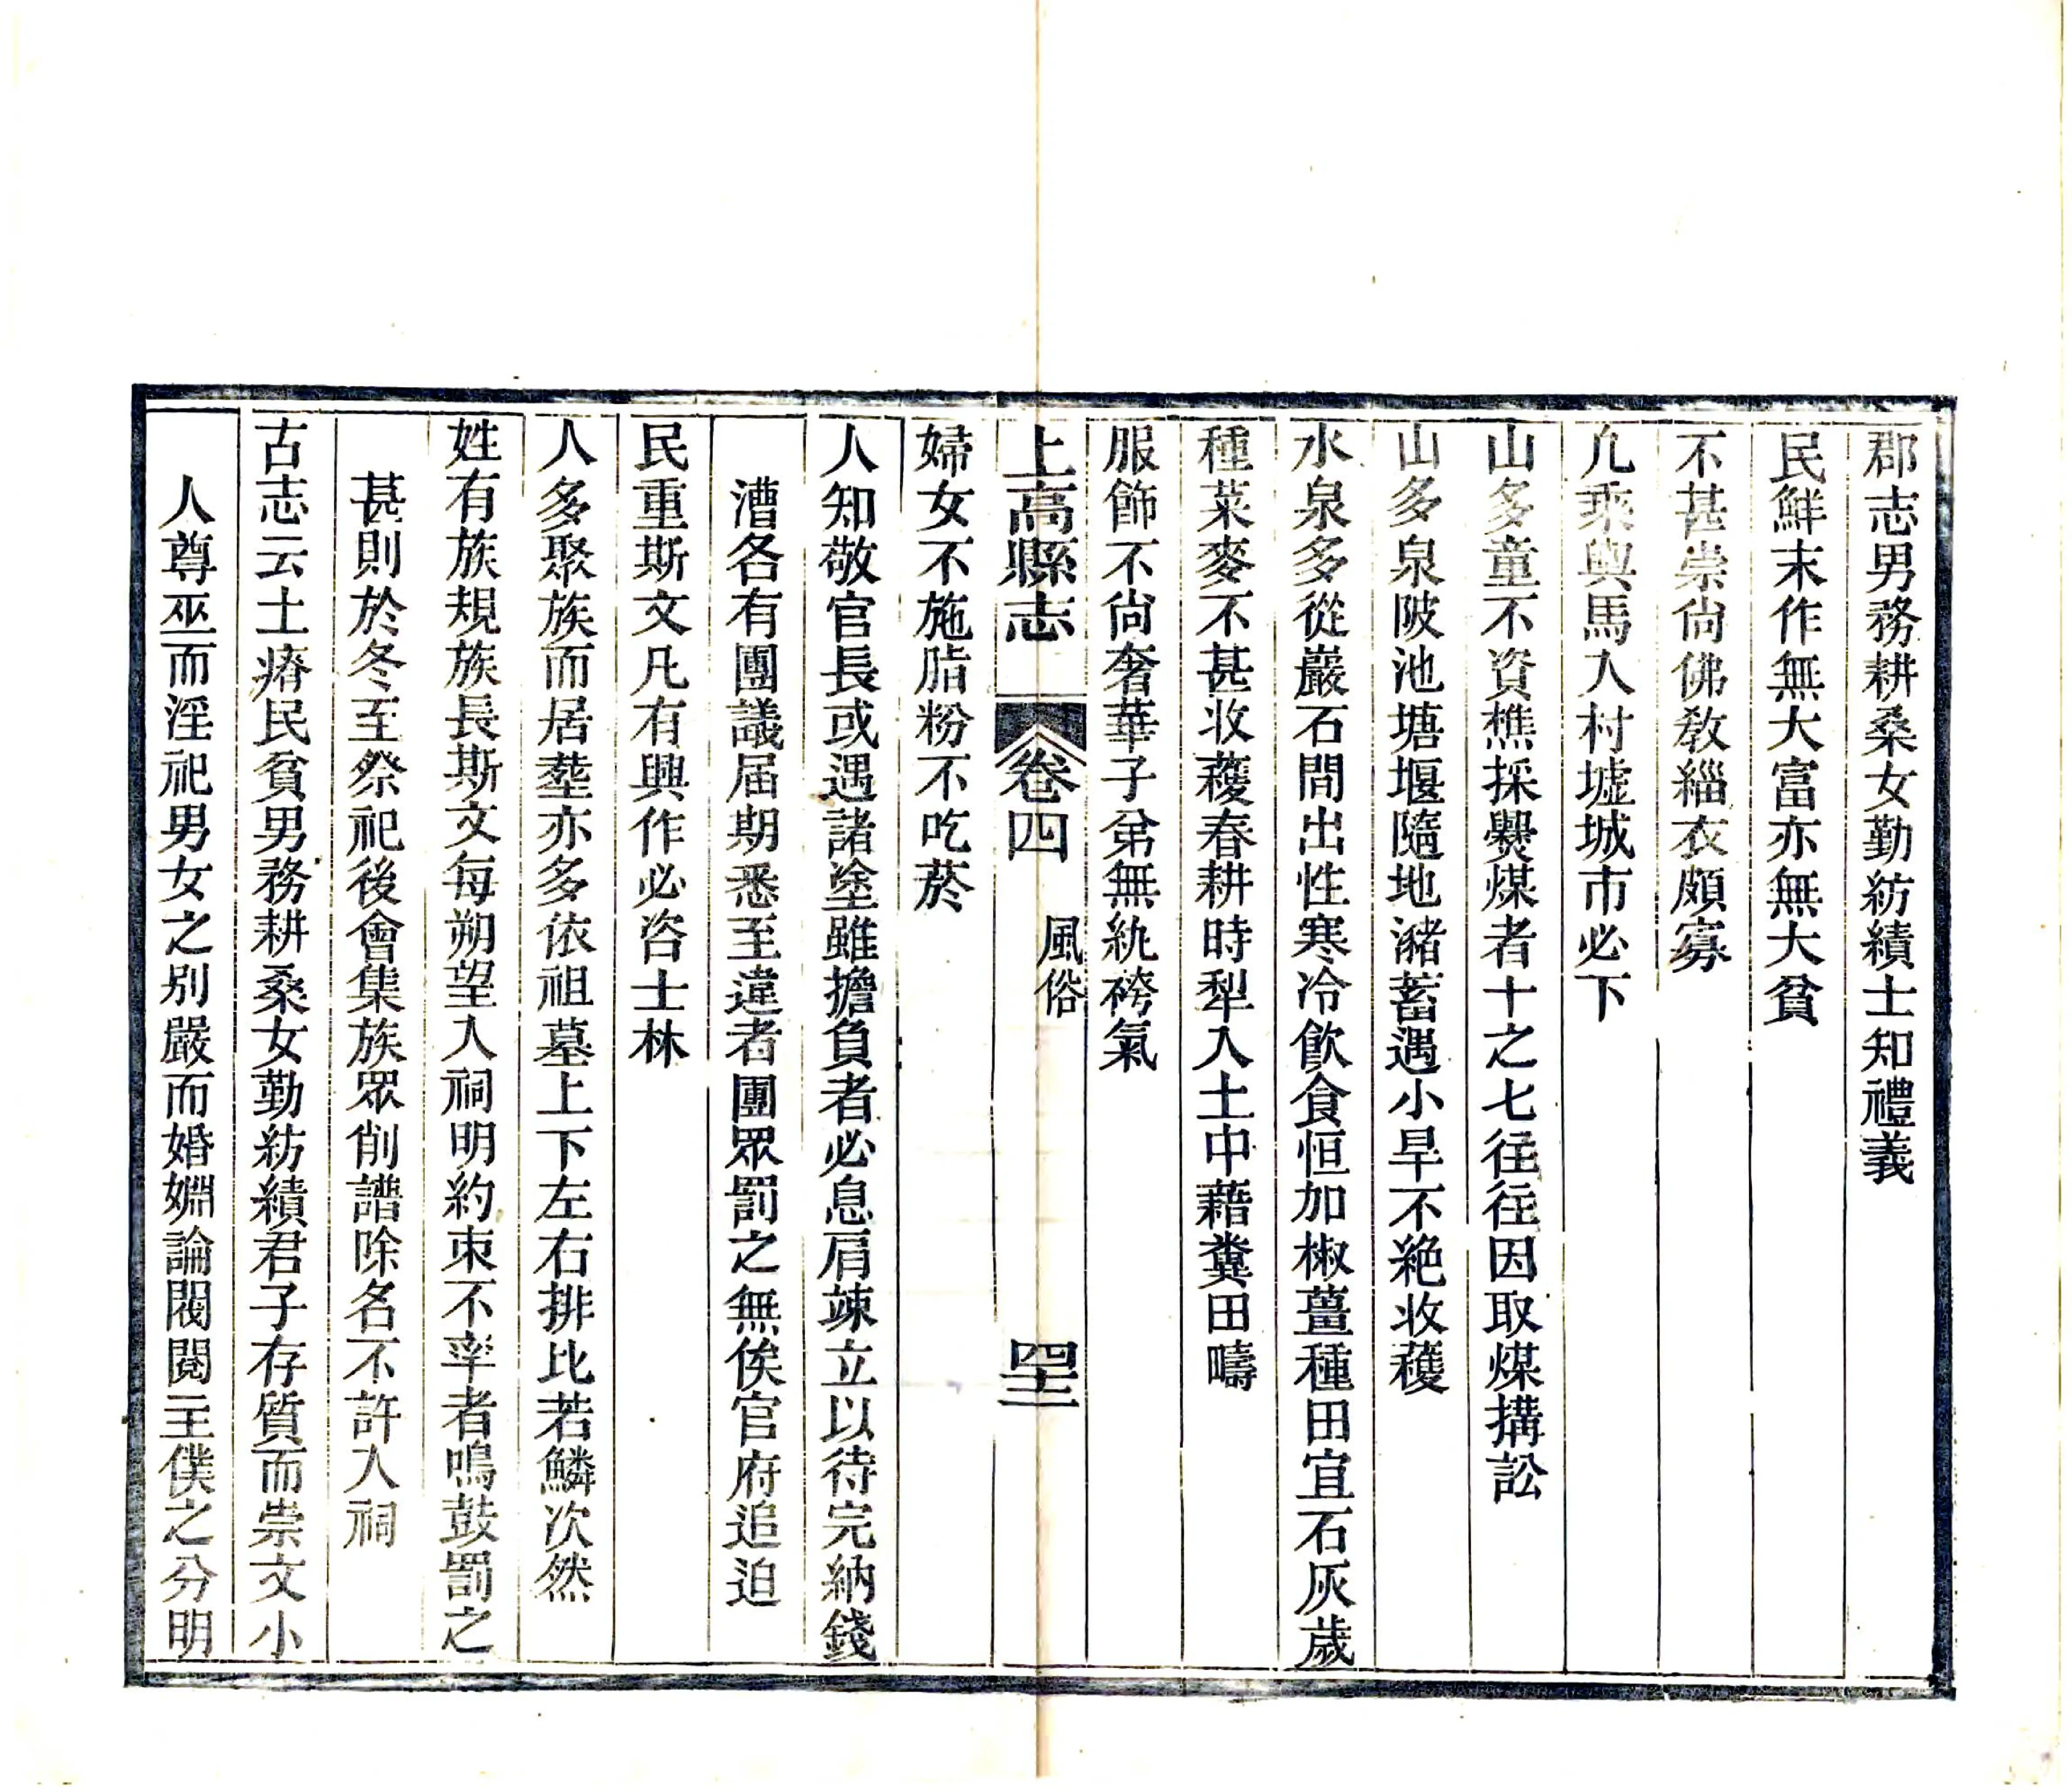 郡志男務耕桑女勤紡績士知禮義
民鮮末作無大富亦無大貧
不甚崇尙佛敎緇衣頗寡
凣乘與馬入村墟城市必下
山多童不資樵採爨煤者十之七往往因取煤搆訟
山多泉陂池塘堰隨地瀦蓄遇小旱不絕收穫
水泉多從巖石間出性寒冷飮食恒加椒薑種田宜石灰歲
種菜麥不甚收穫春耕時犁入土中藉糞田疇
服飾不尙奢華子弟無紈袴氣
上高縣志
卷四
風俗
四十二
婦女不施脂粉不吃菸
人知敬官長或遇諸塗雖擔負者必息肩竦立以待完納錢
漕各有團議届期悉至違者團眾罰之無俟官府追迫
民重斯文凡有興作必咨士林
人多聚族而居塟亦多依祖墓上下左右排比若鱗次然
姓有族規族長斯文每朔望入祠明約束不率者鳴鼓罰之
甚則於冬至祭祀後會集族眾削譜除名不許入祠
古志云土瘠民貧男務耕桑女勤紡績君子存質而崇文小
人尊巫而淫祀男女之别嚴而婚姻論閥閱主僕之分明